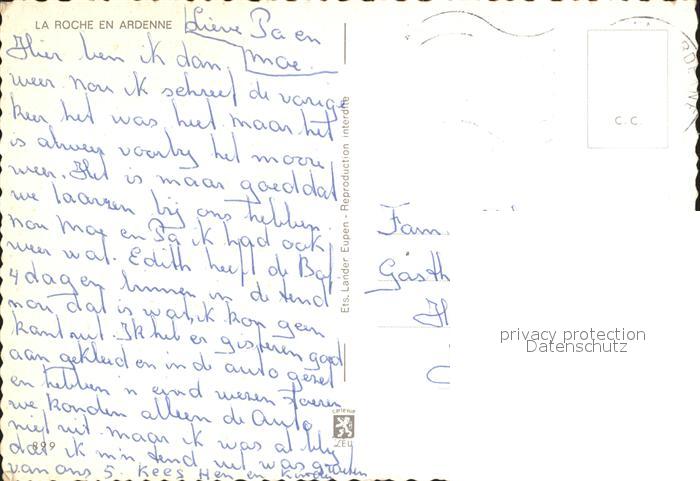 LA ROCHE EN ARDENNE
Lieve Pa en
Moe.
Hier ben ik dan
weer nou ik schreef de vorige
keer het was heet maar het
is alweer voorbij het mooie
weer. Het is maar goed dat
we laarzen bij ons hebben.
nou Moe en Pa ik had ook
weer wat. Edith heeft de Bof
4 dagen binnen in de tend
nou, dat is wat, ik kon geen
kant uit. Ik heb er gisteren goed
aan gekleed en in de auto gezet
en hebben n eind wezen toeren
we konden alleen de Auto
niet uit maar ik was al blij
dat ik m'n tend uit was groeten
van ons 5. Kees Hen en Kinderen
899
Ets. Lander Eupen - Reproduction interdite
C.C.
Fam.
Gasth
privacy protection
Datenschutz
LEU